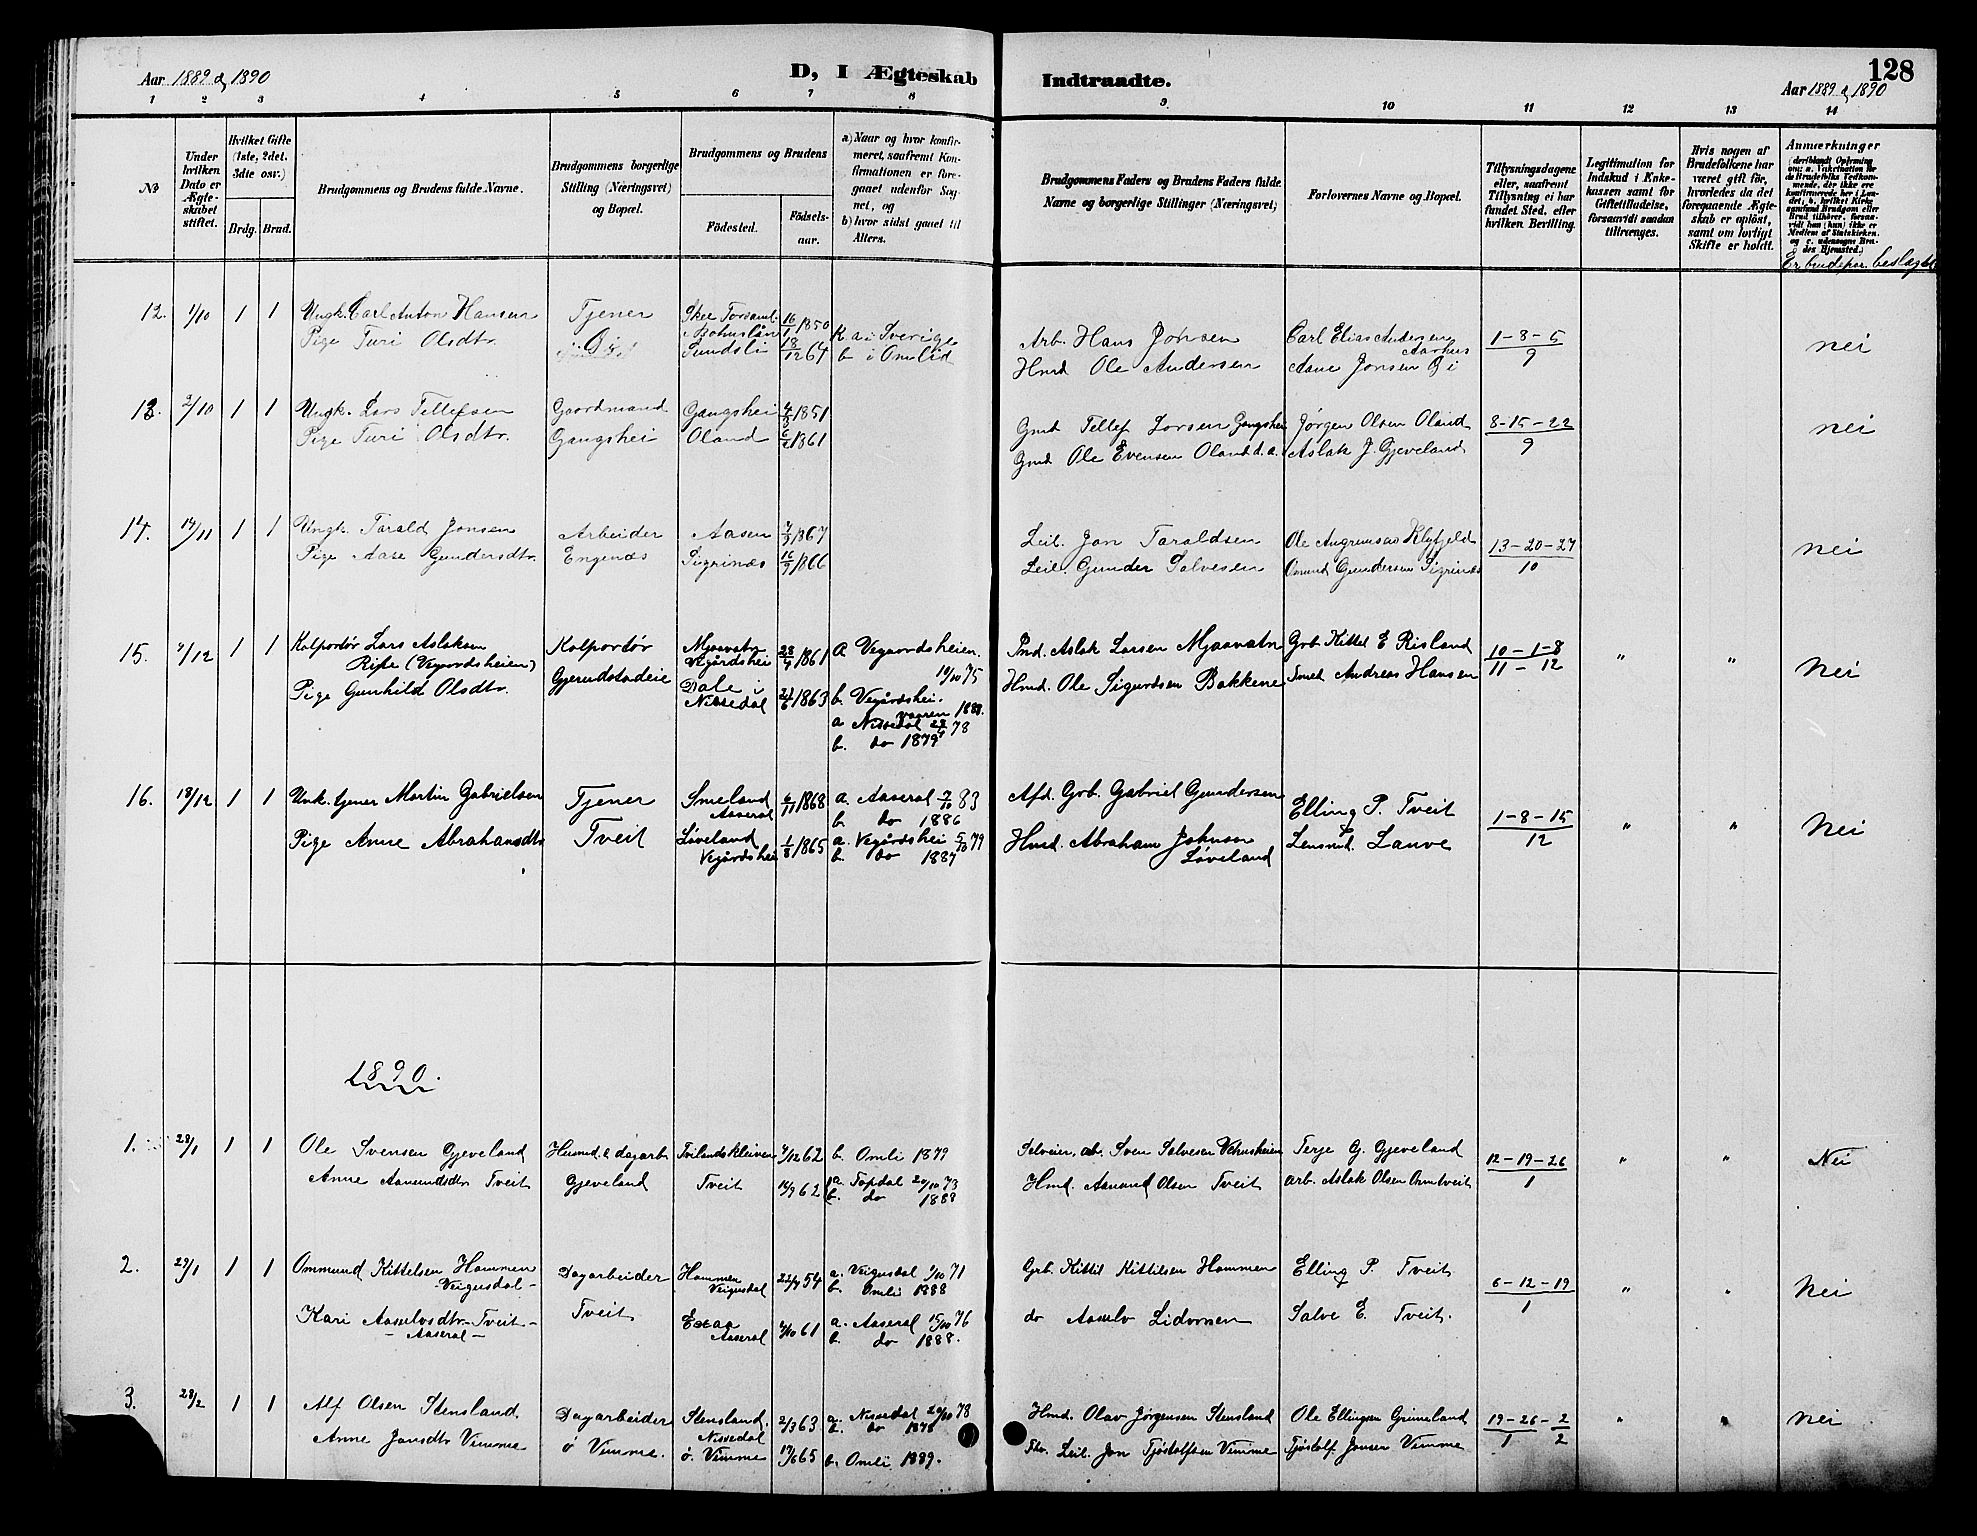 Aar 1889 & 1890
D, I Ægteskab Indtraadte.
128
Aar 1889 & 1890
1 2 3 4 5 6 7 8 9 10 11 12 13 14
No
Under hvilken Dato er Ægteskabet stiftet.
Hvilket Gifte (1ste, 2det, 3die osv.)
Brdg. Brud.
Brudgommens og Brudens fulde Navne.
Brudgommens borgerlige Stilling (Næringsvei) og Bopæl.
Brudgommens og Brudens
Fødested. Fødselsaar.
a) Naar og hvor konfirmeret, saafremt Konfirmationen er foregaaet udenfor Sognet, og
b) hvor sidst gaaet til Alters.
Brudgommens Faders og Brudens Faders fulde Navne og borgerlige Stillinger (Næringsvei)
Forlovernes Navne og Bopæl.
Tillysningsdagene eller, saafremt Tillysning ei har fundet Sted, efter hvilken Bevilling.
Legitimation for Indskud i Enkekassen samt for Giftetilladelse, forsaavidt saadan tiltrænges.
Hvis nogen af Brudefolkene har været gift før, hvorledes da det foregaaende Ægteskab er opløst, samt om lovligt Skifte er holdt.
Anmærkninger
Er brudepar. beslægtet
12. 1/10 1 1 Ungk. Carl Anton Hansen Tjener Skee Forsaml. Bohuslän 16/1 1850 K a i Sverige Arb. Hans Jonsen Carl Elias Andersen Aarhus 1-8-5/9 nei
Pige Turi Olsdtr. Sundsli 18/12 64 b i Omlid Hmd Ole Andersen Aane Jonsen
13. 2/10 1 1 Ungk. Lars Tellefsen Gaardmand Gangshei 1851 Gmd Tellef Larsen Gangshei Jørgen Olsen Oland 8-15-22/9 nei
Pige Turi Olsdtr. Gangshei Oland 1861 Gmd Ole Evensen Oland d. a. Aslak J. Gjeveland
14. 14/11 1 1 Ungk. Tarald Jonsen Arbeider Aasen 1867 Leil. Jon Taraldsen Ole 13-20-27/10 nei
Pige Aase Gundersdtr. Engenæs Sigrinæs 16/9 1866 Leil. Gunder Salvesen Omund Gundersen Sigrinæs
15. 7/12 1 1 Kolportør Lars Aslaksen Kolportør Mjaavatn Vegårdshei 28/4 1861 a Vegaardsheien Pmd. Aslak Larsen Mjaavatn Grb Kittel E Risland 10-1-8/11-12 " " Nei
Risle (Vegaardsheien) Gjerudstadeie 10/10 75
Pige Gunhild Olsdtr. Dale i Nissedal 21/6 1863 b. Vegårdshei. vaaren 1888. Hmd. Ole Sigurdsen Bakkene Smed Andreas Hansen
a Nissedal 78
b. do 1879
16. 18/12 1 1 Unk. tjener Martin Gabrielsen Tjener Smeland Aaseral 6/11 1868 a. Aaseral 83 Afd. Grb. Gabriel Gundersen Elling P. Tveit 1-8-15/12 " " Nei
b. do 1886
Pige Anne Abrahamsdtr Tveit Løveland Vegårdshei 1/8 1865 a. Vegårdshei 5/10 79 Hmd. Abraham Johnsen Løveland Lensmd. Lauve
b. do 1887
1890.
1. 28/1 1 1 Ole Svensen Gjeveland Husmd. & dagarb. Tvilandskleiven 62 b. Omli 1879 Selveier, arb. Sven Salvesen Terje G. Gjeveland 12-19-26/1 " " Nei
Anne Aanundsdtr Tveit Gjeveland Tveit 14/9 62 a. Topdal 73 Hmd. Aanund Olsen Tveit arb. Aslak Olsen Omtveit
b. do 1888
2. 29/1 1 1 Ommund Kittelsen Hommen Dagarbeider Hommen Veigusdal 22/7 54 a. Veigusdal 71 Grb. Kittil Kittilsen Hommen Elling P. Tveit 6-12-19/1 " " Nei
-Veigusdal- b. Omli 1888
Kari Aaselvsdtr-Tveit- Tveit Aaseral 61 a. Aaseral 15/10 76 do Aaselv Lidvonen Salve E. Tveit.
-Aaseral- b. do 1888.
3. 28/2 1 1 Alf Olsen Stensland. Dagarbeider Stensland. Nissedal 2/3 63 a. Nissedal 20/10 78 Hmd. Olav Jørgensen Stensland Ole Ellingsen Grimeland 19-26-2/1 2 " " nei
do 1878
Anne Jonsdtr Vimme ø Vimme. ø. Vimme 65 b. Omli 1889. Leil. Jon Tjøstolfsen Vimme Tjøstolf Jonsen Vimme